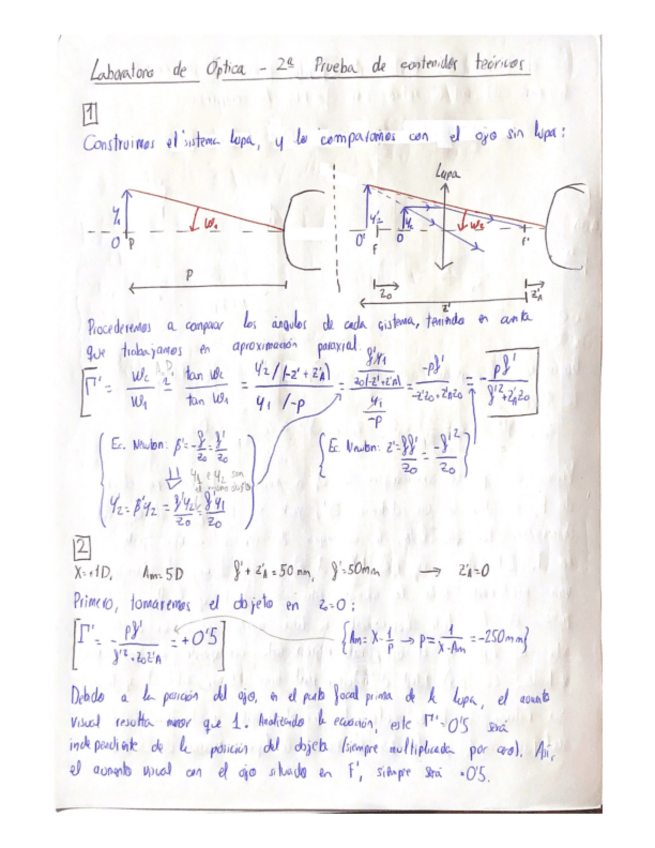 Laboratorio de Óptica - 2ª Prueba de contenidos teóricos
1
Construimos el sistema lupa, y lo comparamos con el ojo sin lupa:
Lupa
y₁ O P ω₁
O' y'₂ F O y₂ ω₂ F'
p
z₀ z'ₐ
z'
Procederemos a comparar los ángulos de cada sistema, teniendo en cuenta
que trabajamos en aproximación paraxial.
Γ' = ω₂/ω₁ = A.P. tan ω₂/tan ω₁ = (y'₂/(-z'+z'ₐ))/(y₁/-p) = (f'y₁/(z₀(-z'+z'ₐ)))/(y₁/-p) = -pf'/(-z'z₀+z'ₐz₀) = -pf'/(f'²+z'ₐz₀)
{Ec. Newton: β' = -f/z₀ = f'/z₀
{Ec. Newton: z' = ff'/z₀ = -f'²/z₀}
y₁ e y₂ son
el mismo objeto
y'₂ = β'y₂ = f'y₂/z₀ = f'y₁/z₀
2
X=+1D, Am=5D f'+z'ₐ=50mm, f'=50mm → z'ₐ=0
Primero, tomaremos el objeto en z=0:
[Γ' = -pf'/(f'²+z₀z'ₐ) = +0'5]
{Am = X - 1/p → p = 1/(X-Am) = -250mm}
Debido a la posición del ojo, en el punto focal prima de la lupa, el aumento
visual resulta menor que 1. Analizando la ecuación, este Γ'=0'5 será
independiente de la posición del objeto (siempre multiplicada por cero). Así,
el aumento visual con el ojo situado en F', siempre será +0'5.